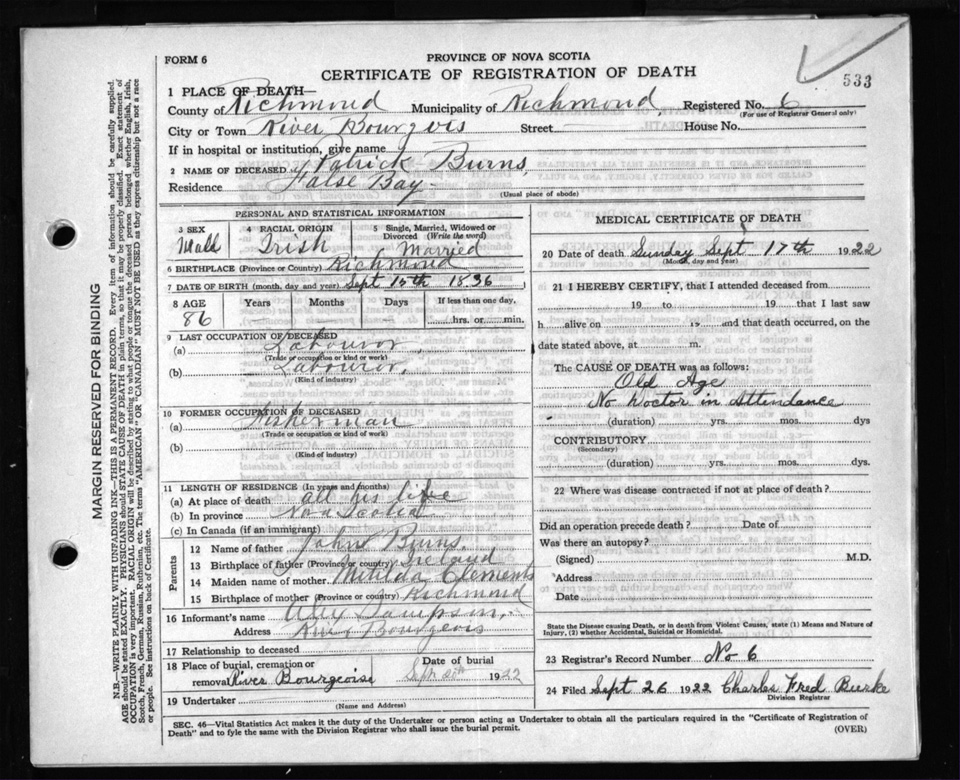 FORM 6
PROVINCE OF NOVA SCOTIA
CERTIFICATE OF REGISTRATION OF DEATH
533
1 PLACE OF DEATH—
County of Richmond Municipality of Richmond Registered No. 6
(For use of Registrar General only)
City or Town River Bourgeois Street House No.
If in hospital or institution, give name
2 NAME OF DECEASED Patrick Burns,
Residence False Bay -
(Usual place of abode)
PERSONAL AND STATISTICAL INFORMATION
3 SEX 4 RACIAL ORIGIN 5 Single, Married, Widowed or Divorced (Write the word)
Irish Married
6 BIRTHPLACE (Province or Country) Richmond
7 DATE OF BIRTH (month, day and year) Sept 15th 1836
8 AGE Years Months Days If less than one day,
86 hrs. or min.
9 LAST OCCUPATION OF DECEASED
(a) Labouror,
(Trade or occupation or kind of work)
(b) Labouror,
(Kind of industry)
10 FORMER OCCUPATION OF DECEASED
(a) Fisherman
(Trade or occupation or kind of work)
(b)
(Kind of industry)
11 LENGTH OF RESIDENCE (In years and months)
(a) At place of death all his life
(b) In province Nova Scotia
(c) In Canada (if an immigrant)
Parents
12 Name of father John Burns
13 Birthplace of father (Province or country) Ireland
14 Maiden name of mother Matilda Clements
15 Birthplace of mother (Province or country) Richmond
16 Informant's name Alex Sampson,
Address River Bourgeois
17 Relationship to deceased
18 Place of burial, cremation or removal River Bourgeoise
Date of burial
Sept 20th 1922
19 Undertaker
(Name and Address)
MEDICAL CERTIFICATE OF DEATH
20 Date of death Sunday Sept 17th 1922
(Month, day and year)
21 I HEREBY CERTIFY, that I attended deceased from
19 to 19 that I last saw
h alive on 19 and that death occurred, on the
date stated above, at m.
The CAUSE OF DEATH was as follows:
Old Age
No Doctor in Attendance
(duration) yrs. mos. dys
CONTRIBUTORY
(Secondary)
(duration) yrs. mos. dys.
22 Where was disease contracted if not at place of death?
Did an operation precede death? Date of
Was there an autopsy?
(Signed) M.D.
Address
Date
State the Disease causing Death, or in death from Violent Causes, state (1) Means and Nature of
Injury, (2) whether Accidental, Suicidal or Homicidal.
23 Registrar's Record Number No-6
24 Filed Sept 26 1922 Charles Fred Burke
Division Registrar
SEC. 46—Vital Statistics Act makes it duty of the Undertaker or person acting as Undertaker to obtain all the particulars required in the "Certificate of Registration of
Death" and to fyle the same with the Division Registrar who shall issue the burial permit.
(OVER)
MARGIN RESERVED FOR BINDING
N.B.—WRITE PLAINLY WITH UNFADING INK—THIS IS A PERMANENT RECORD. Every item of information should be carefully supplied.
AGE should be stated EXACTLY. PHYSICIANS should STATE CAUSE OF DEATH in plain terms, so that it may be properly classified. Exact statement of
OCCUPATION is very important. RACIAL ORIGIN will be described by stating to what people or tongue the deceased person belonged whether English, Irish,
Scotch, French, German, Russian, Ruthenian, etc. The terms "AMERICAN" OR "CANADIAN" MUST NOT BE USED as they express citizenship but not a race
or people. See instructions on back of Certificate.